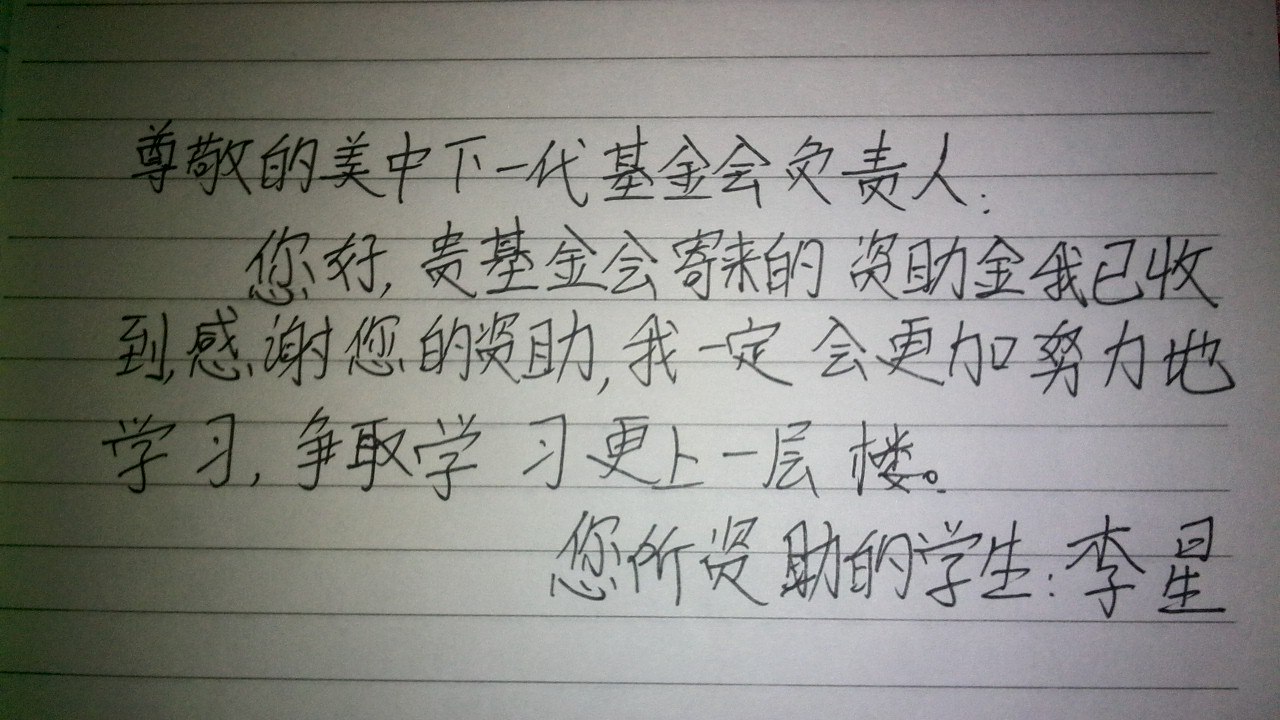 尊敬的美中下一代基金会负责人:
您好,贵基金会寄来的资助金我已收
到,感谢您的资助,我一定会更加努力地
学习,争取学习更上一层楼。
您所资助的学生:李星